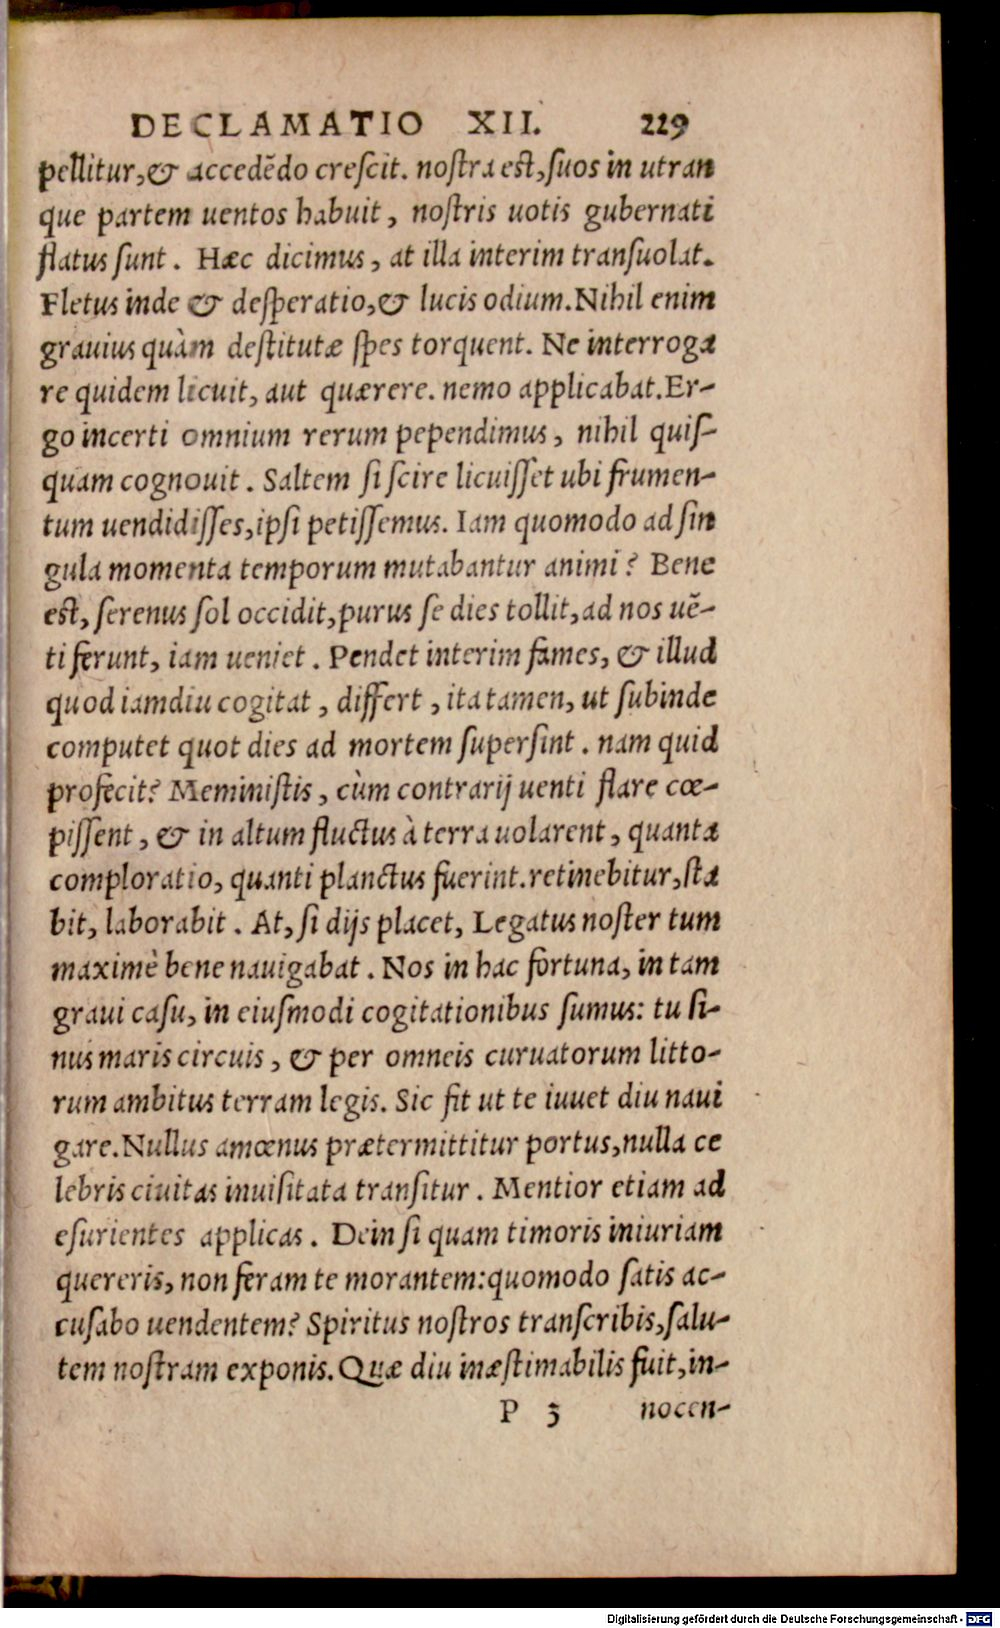 DECLAMATIO XII. 229
pellitur,& accedēdo crescit. nostra est,suos in utran
que partem uentos habuit, nostris uotis gubernati
flatus sunt. Hæc dicimus, at illa interim transuolat.
Fletus inde & desperatio,& lucis odium.Nihil enim
grauius quàm destitutæ spes torquent. Ne interroga
re quidem licuit, aut quærere. nemo applicabat.Er-
go incerti omnium rerum pependimus, nihil quis-
quam cognouit. Saltem si scire licuisset ubi frumen-
tum uendidisses,ipsi petissemus. Iam quomodo ad sin
gula momenta temporum mutabantur animi? Bene
est, serenus sol occidit,purus se dies tollit,ad nos uē-
ti ferunt, iam ueniet. Pendet interim fames, & illud
quod iamdiu cogitat, differt, ita tamen, ut subinde
computet quot dies ad mortem supersint. nam quid
profecit? Meministis, cùm contrarij uenti flare cœ-
pissent, & in altum fluctus à terra uolarent, quanta
comploratio, quanti planctus fuerint.retinebitur,sta
bit, laborabit. At, si dijs placet, Legatus noster tum
maximè bene nauigabat. Nos in hac fortuna, in tam
graui casu, in eiusmodi cogitationibus sumus: tu si-
nus maris circuis, & per omneis curuatorum litto-
rum ambitus terram legis. Sic fit ut te iuuet diu naui
gare.Nullus amœnus prætermittitur portus,nulla ce
lebris ciuitas inuisitata transitur. Mentior etiam ad
esurientes applicas. Dein si quam timoris iniuriam
quereris, non feram te morantem:quomodo satis ac-
cusabo uendentem? Spiritus nostros transcribis,salu-
tem nostram exponis.Quæ diu inæstimabilis fuit,in-
P 3 nocen-
Digitalisierung gefördert durch die Deutsche Forschungsgemeinschaft - DFG